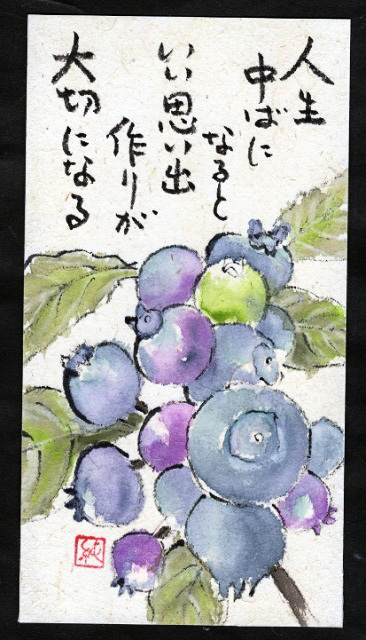 人生
中ばに
なると
いい思い出
作りが
大切になる
純